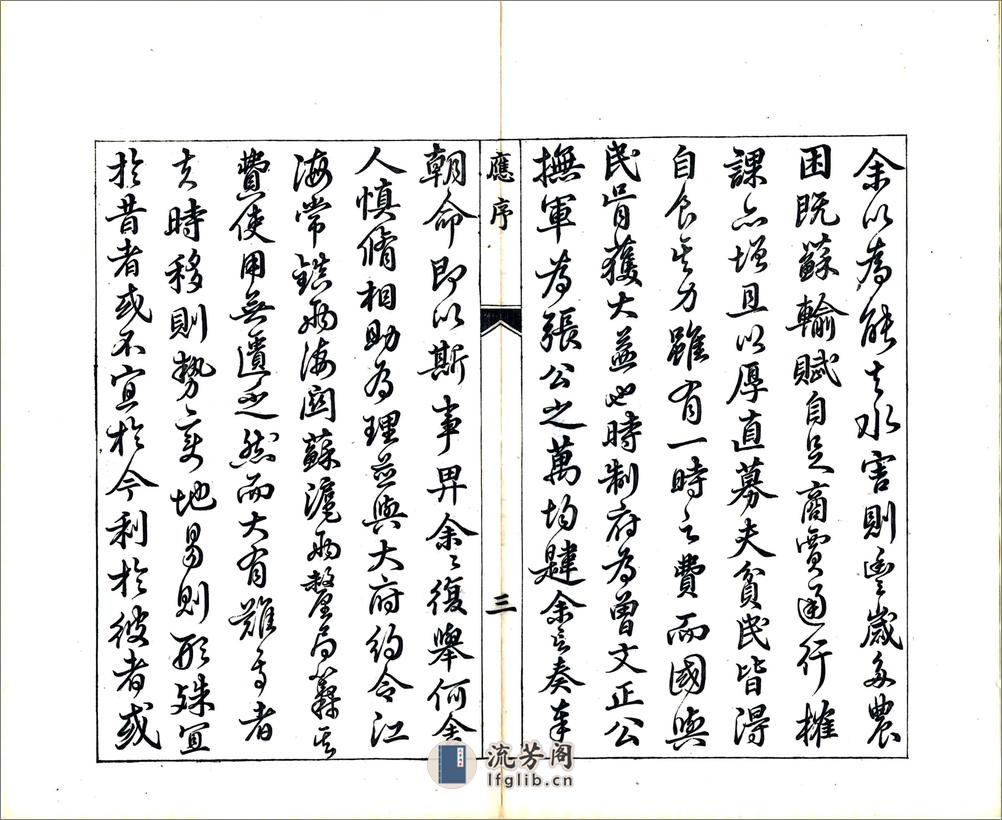 余以為能去水害則豐歲多農
困既蘇輸賦自足商賈通行榷
課亦增且以厚直募夫貧民皆得
自食其力雖有一時之費而國與
民胥獲大益也時制府為曾文正公
撫軍為張公之萬均韙余言奏奉
應序
三
朝命即以斯事畀余余復舉何舍
人慎脩相助為理並與大府約令江
海常鎮兩海關蘇滬兩釐局籌其
費使用無遺乏然而大有難焉者
夫時移則勢變地易則形殊宜
於昔者或不宜於今利於彼者或
流芳阁
lfglib.cn